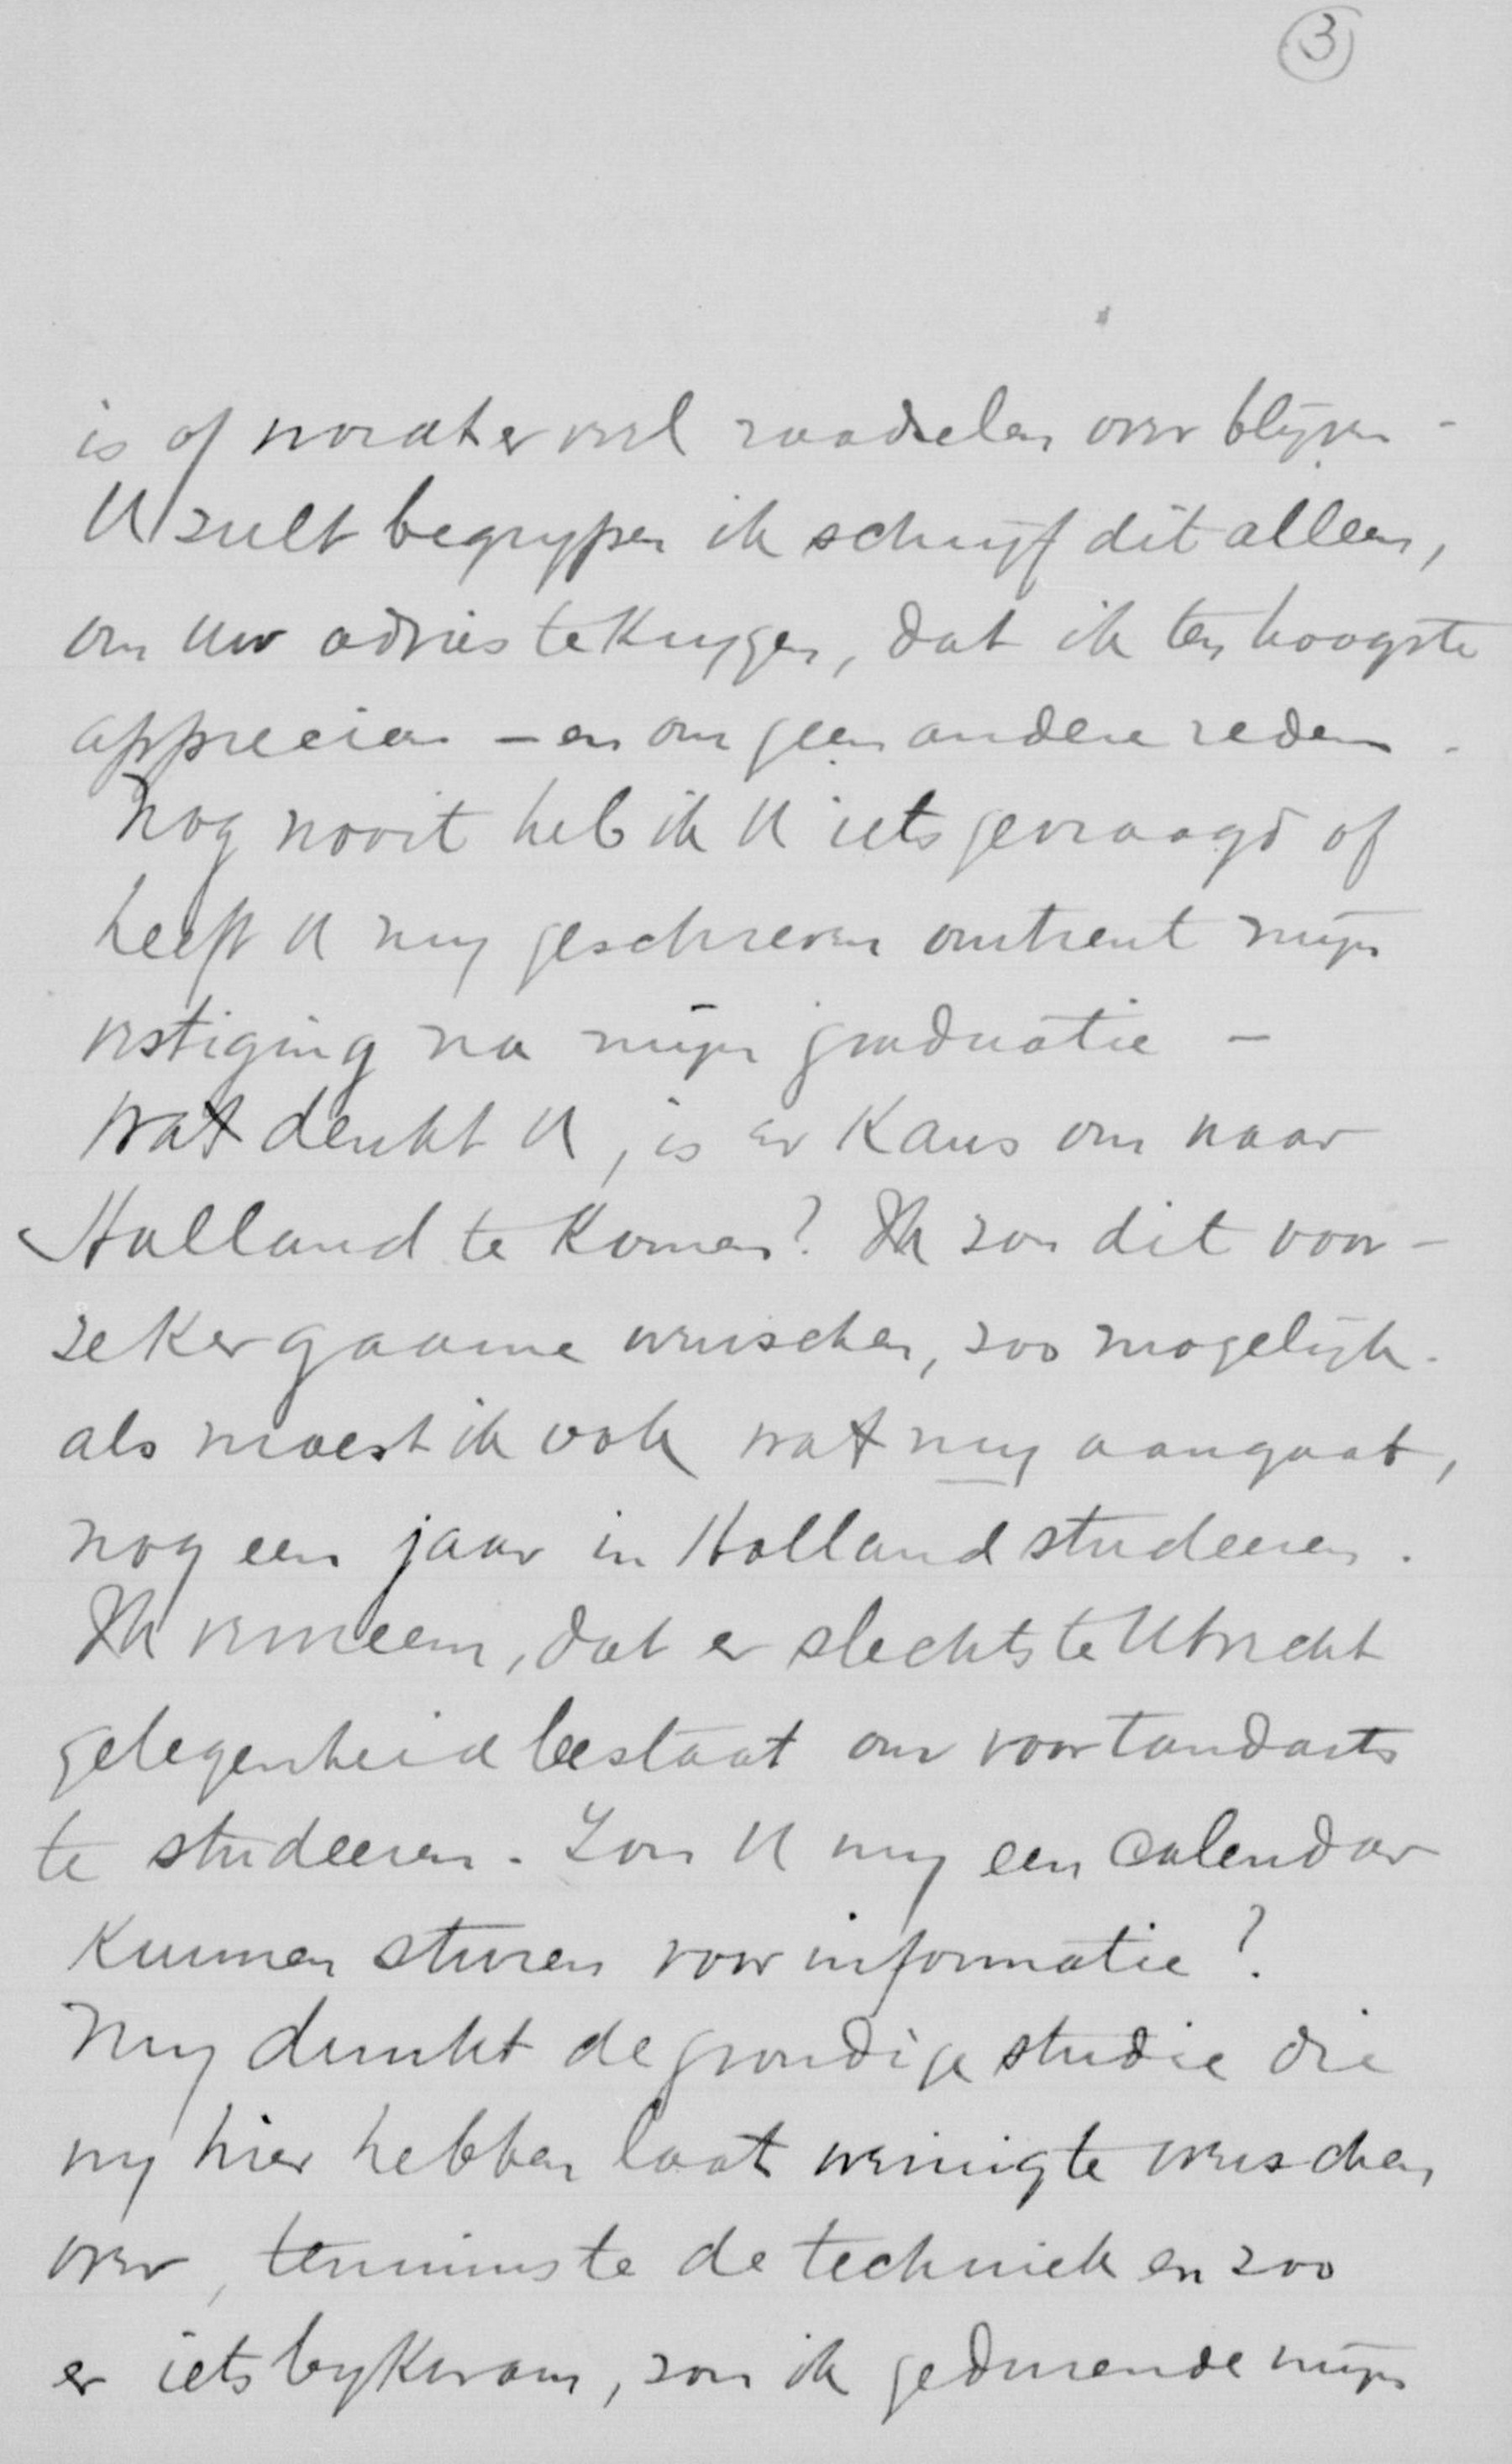 3
is of wordt er veel raadselen over blijven -
U zult begrypen ik schrijf dit alleen,
om uw advies te krygen, dat ik ten hoogste
apprecieer - en om geen andere reden.
Nog nooit heb ik U iets gevraagd of
heeft U my geschreven omtrent mijn
vestiging na mijn graduatie -
wat denkt U, is er kans om naar
Holland te komen? Ik zou dit voor-
zeker gaarne wenschen, zoo mogelijk.
als moest ik ook wat my aangaat,
nog een jaar in Holland studeeren.
Ik verneem, dat er slechts te Utrecht
gelegenheid bestaat om voor tandarts
te studeeren. Zou U my een calendar
kunnen sturen voor informatie?
My dunkt de grondige studie die
wy hier hebben laat weinig te wenschen
over, tenminste de techniek en zoo
er iets bykwam, zou ik gedurende mijn